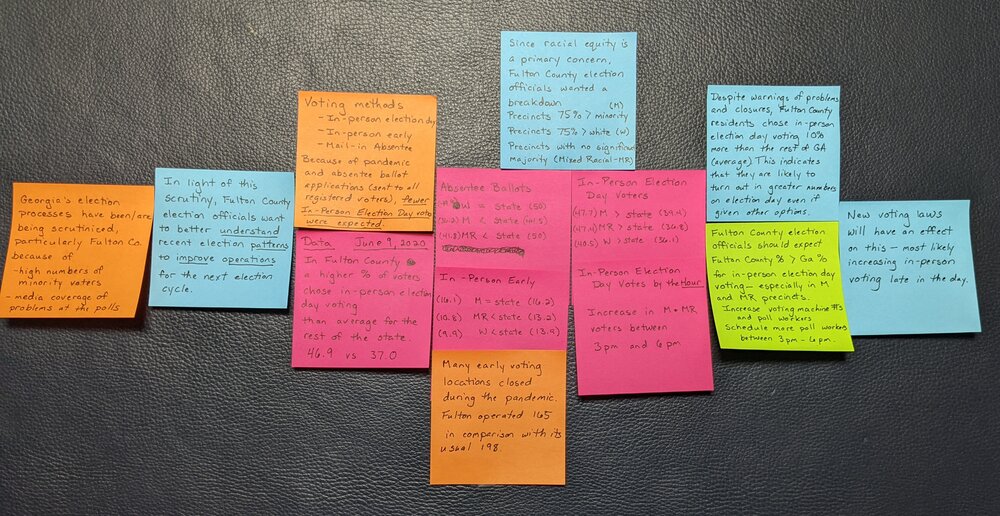 Georgia's election
processes have been/are
being scrutinized,
particularly Fulton Co.
because of
-high numbers of
minority voters
- media coverage of
problems at the polls
In light of this
Scrutiny, Fulton County
election officials want
to better understand
recent election patterns
to improve operations
for the next election
cycle.
Voting methods
- In-person election day
- In-person early
- Mail-in Absentee
Because of pandemic
and absentee ballot
applications (sent to all
registered voters), fewer
In-Person Election Day vote
were expected.
Data June 9, 2020
In Fulton County
a higher % of voters
chose in-person election
day voting
than average for the
rest of the state.
46.9 vs 37.0
Since racial equity is
a primary concern,
Fulton County election
officials wanted a
breakdown (M)
Precincts 75% > minority
Precincts 75% > white (W)
Precincts with no significant
majority (Mixed Racial-MR)
Absentee Ballots
W = State (50)
M < State
(41.8) MR < State (50)
In-Person Early
(16.1) M = state (16.2)
(10.8) MR < state (13.2)
(9.9) W < state (13.9)
Many early voting
locations closed
during the pandemic.
Fulton operated 165
in comparison with its
usual 198.
In-Person Election
Day Voters
(47.7) M > state (39.4)
MR > state (36.8)
(40.5) W > state (36.1)
In-Person Election
Day Votes by the Hour
Increase in M + MR
voters between
3 pm and 6 pm
Despite warnings of problems
and closures, Fulton County
residents chose in-person
election day voting 10%
more than the rest of GA
(average). This indicates
that they are likely to
turn out in greater numbers
on election day even if
given other options.
Fulton County election
officials should expect
Fulton County % > Ga %
for in-person election day
voting - especially in M
and MR precincts.
Increase voting machine #s
and poll workers
Schedule more poll workers
between 3 pm - 6 pm.
New voting laws
will have an effect
on this - most likely
increasing in-person
voting late in the day.